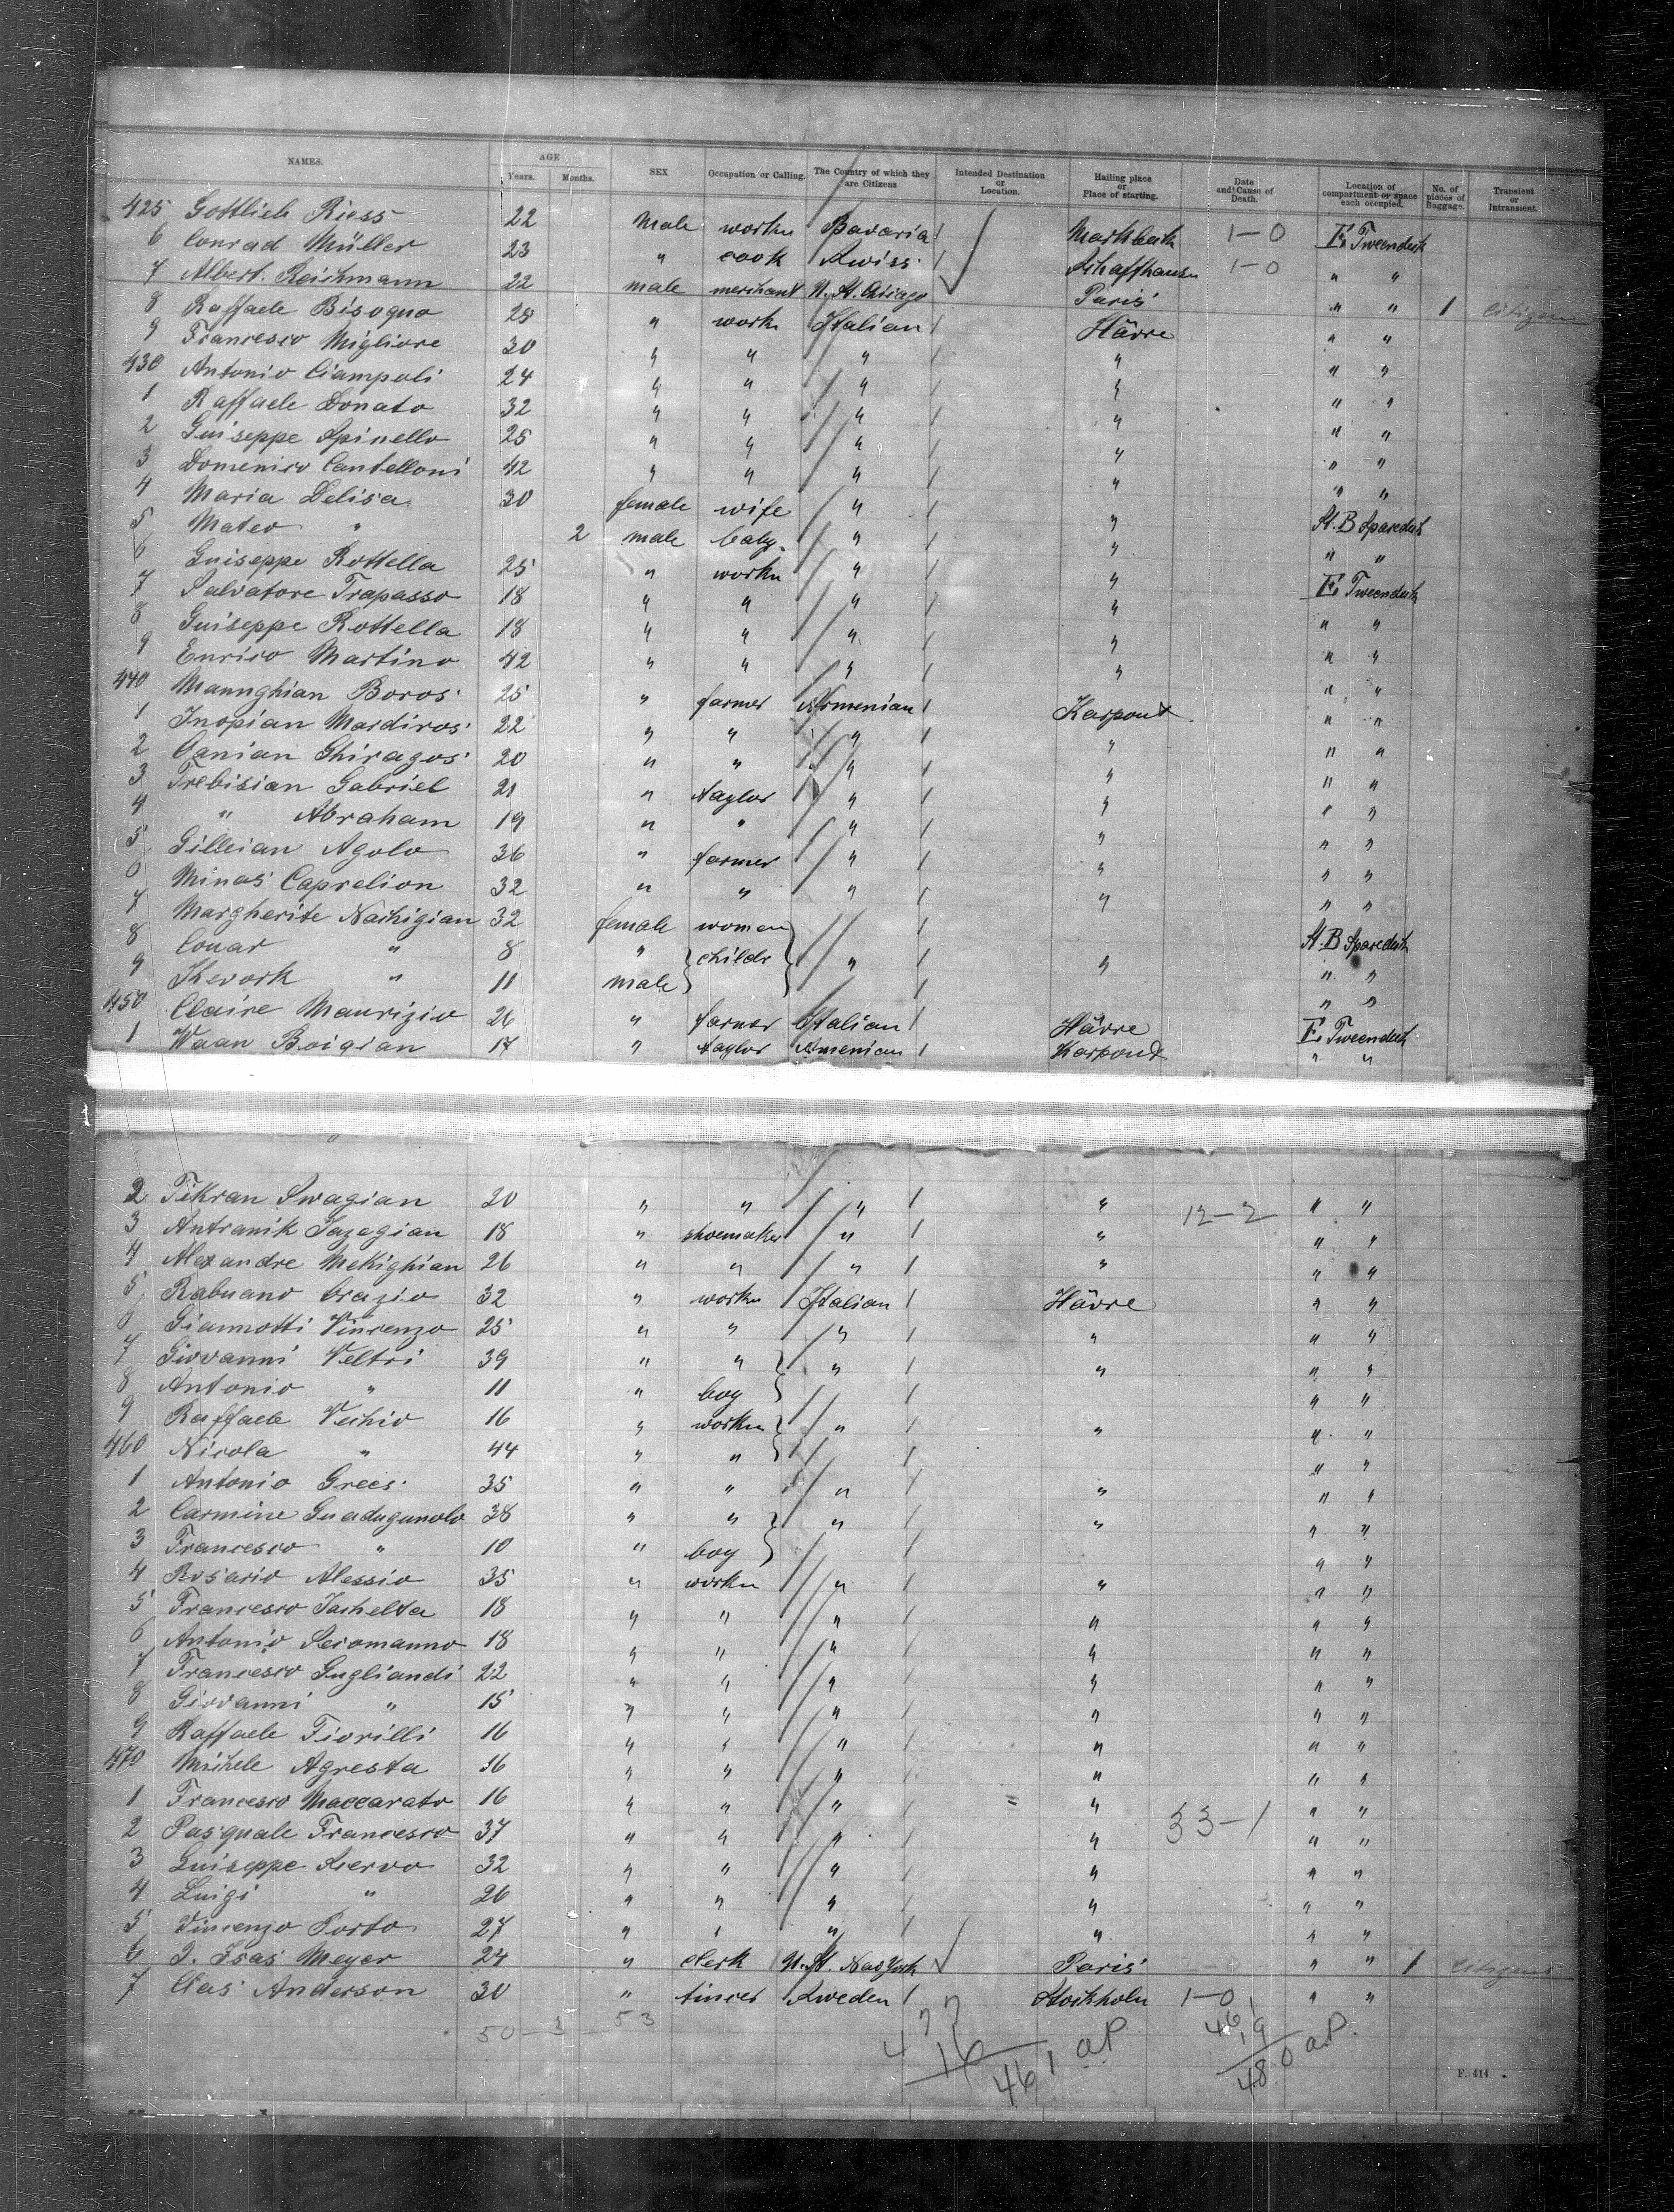 NAMES. AGE Years. Months. SEX Occupation or Calling. The Country of which they are Citizens Intended Destination or Location. Hailing place or Place of starting. Date and Cause of Death. Location of compartment or space each occupied. No. of pieces of Baggage. Transient or Intransient.
425 Gottlieb Riess 22 Male worker Bavaria 1-0 E. Tweendeck
6 Conrad Müller 23 " cook Swiss Schaffhausen 1-0 " "
7 Albert Reichmann 22 male merchant U. St. Chicago Paris " " 1 citizen
8 Raffaele Bisogno 28 " work Italian Hâvre " "
9 Francesco Migliore 30 " " " " " "
430 Antonio Ciampoli 24 " " " " " "
1 Raffaele Donato 32 " " " " " "
2 Guiseppe Spinello 25 " " " " " "
3 Domenico Cantelloni 42 " " " " " "
4 Maria Delisa 30 female wife " " St. B Sparedeck
5 Mateo " 2 male baby " " " "
6 Guiseppe Rottella 25 " worker " " E. Tweendeck
7 Salvatore Trapasso 18 " " " " " "
8 Guiseppe Rottella 18 " " " " " "
9 Enrico Martino 42 " " " " " "
440 Mannghian Boros 25 " farmer Armenian Karpout " "
1 Inopian Mardiros 22 " " " " " "
2 Ghiragos 20 " " " " " "
3 Trebisian Gabriel 21 " taylor " " " "
4 " Abraham 19 " " " " " "
5 Gilleian Agolo 36 " farmer " " " "
6 Minas Caprelion 32 " " " " " "
7 Margherite Nachigian 32 female women St. B Sparedeck
8 Couar " 8 " childr " " " "
9 Kevork " 11 male " "
450 Claire Maurizio 26 " farmer Italian Hâvre E. Tweendeck
1 Waan Boigian 17 " taylor Armenian Karpout " "
2 Tikran Swagian 20 " " " " 12-2 " "
3 Antranik Sazegian 18 " shoemaker " " " "
4 Alexandre Mekighian 26 " " " " " "
5 Rabuano Orazio 32 " worker Italian Hâvre " "
6 Giannotti Vincenzo 25 " " " " " "
7 Giovanni Veltri 39 " " " " " "
8 Antonio " 11 " boy " "
9 Raffaele Vechio 16 " worker " " " "
460 Nicola " 44 " " " "
1 Antonio Grees 35 " " " " " "
2 Carmine Guadugunolo 38 " " " " " "
3 Francesco " 10 " boy " "
4 Rosario Alessio 35 " worker " " " "
5 Francesco Iachelta 18 " " " " " "
6 Antonio Sciomanno 18 " " " " " "
7 Francesco Gugliandi 22 " " " " " "
8 Giovanni " 15 " " " " " "
9 Raffaele Fiorilli 16 " " " " " "
470 Michele Agresta 36 " " " " " "
1 Francesco Maccarato 16 " " " " " "
2 Pasquale Francesco 37 " " " " 33-1 " "
3 Guiseppe Scervo 32 " " " " " "
4 Luigi " 26 " " " " " "
5 Vincenzo Porto 27 " " " " " "
6 I. Isas Meyer 24 " clerk U. St. New York Paris " " 1 citizen
7 Clas Anderson 30 " tincer Sweden Stockholm 1-0 " "
50-3 53 477 461
16 19
461 aP 480 aP.
F. 414